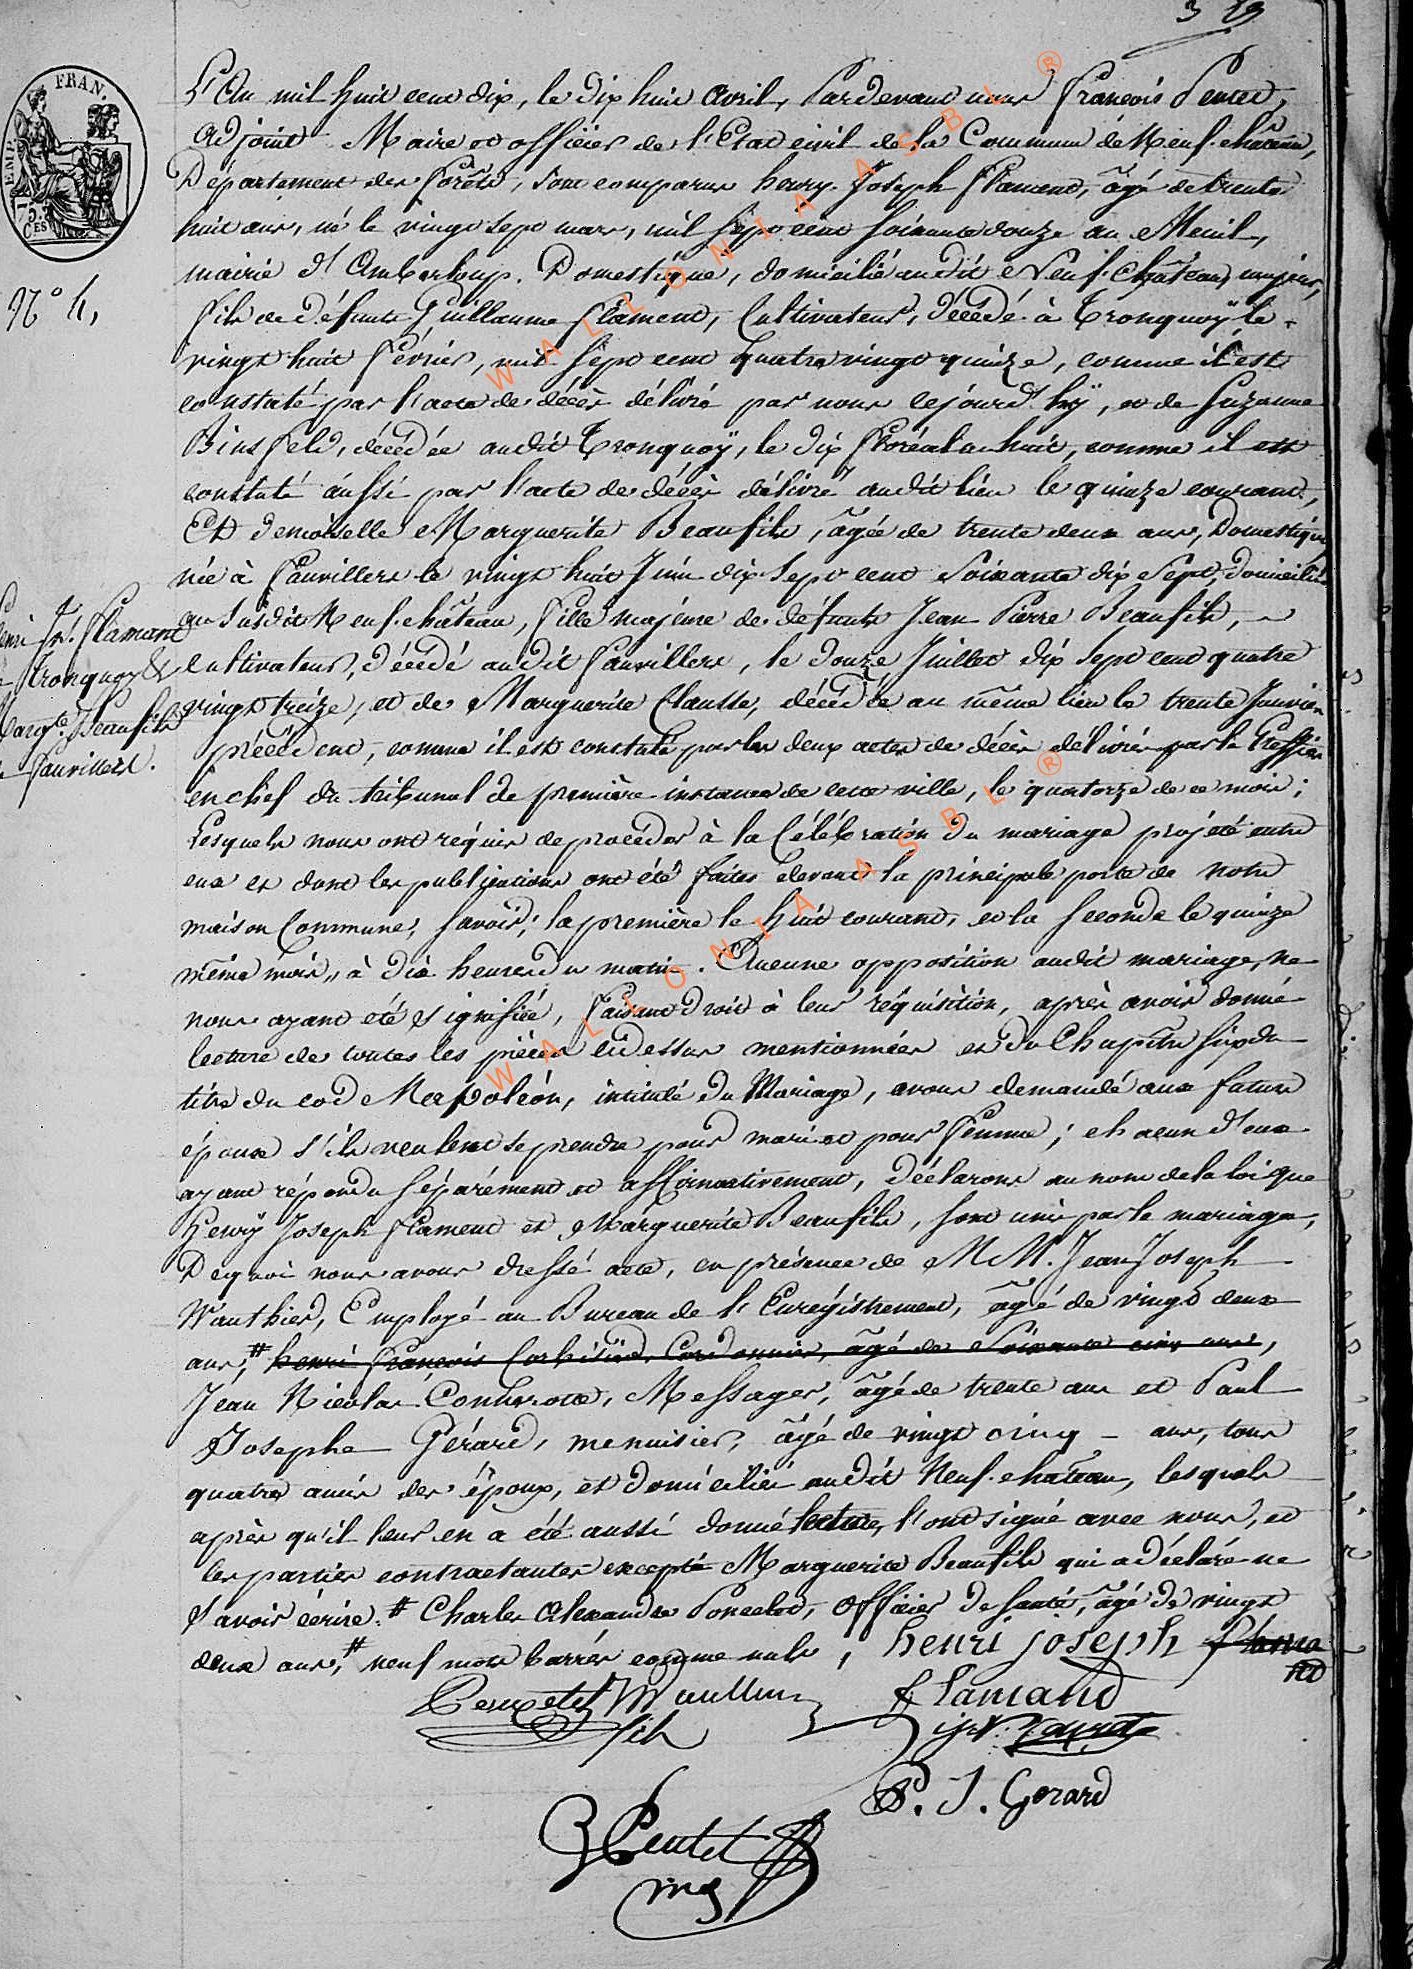 3 29
EMP. FRAN.
75 C.ES
N° 4,
L'An mil huit cent dix, le dix huit Avril, Pardevant nous François Pentet,
Adjoint Maire et officier de l'Etat civil de la Commune de Neuf-château,
Département des Forêts, sont comparus henry Joseph Flament, âgé de trente
huit ans, né le vingt sept mars, mil sept cent soixante douze au Menil,
mairie d'Amberloup. Domestique, domicilié audit Neuf-Château, majeur,
fils de défunts Guillaume Flament, Cultivateur, décédé à Tronquoÿ le
vingt huit Février, mil sept cent quatre vingt quinze, comme il est
constaté par l'acte de décès délivré par nous cejourd'hÿ, et de Suzanne
Binsfeld, décédée audit Tronquoÿ, le dix floréal an huit, comme il est
constaté aussi par l'acte de décès délivré audit lieu le quinze courant,
Et Demoiselle Marguerite Beaufils, âgée de trente deux ans, Domestique
née à Fauvillers le vingt huit Juin dix sept cent soixante dix sept, domiciliée
au susdit Neuf-château, fille majeure de défunts Jean Pierre Beaufils,
cultivateur, décédé audit Fauvillers, le douze Juillet dix sept cent quatre
vingt treize, et de Marguerite Clausse, décédée au même lieu le trente Janvier
précédent, comme il est constaté par les deux actes de décès délivrés par le Greffier
en chef du tribunal de première instance de cette ville, le quatorze de ce mois;
Lesquels nous ont réquis de procéder à la Célébration du mariage projeté entre
eux et dont les publications ont été faites devant la principale porte de notre
maison Commune, Savoir; la première le huit courant, et la seconde le quinze
même mois, à dix heures du matin. Aucune opposition audit mariage, ne
nous ayant été signifiée, Faisant droit à leur réquisition, après avoir donné
lecture de toutes les pièces cidessus mentionnées et du Chapitre six du
titre du cod Napoléon, intitulé du Mariage, avons demandé aux futurs
époux s'ils veulent se prendre pour mari et pour Femme; chacun d'eux
ayant répondu séparément et affirmativement, déclarons au nom de la loi que
Henrÿ Joseph Flament et Marguerite Beaufils, sont unis par le mariage,
De quoi nous avons dressé acte, en présence de MM. Jean Joseph
Wauthier, Employé au Bureau de l'Enrégistrement, âgé de vingt deux
ans, # henri François Corbisier, Cordonnier, âgé de soixante cinq ans,
Jean Nicolas Controtte, Messager, âgé de trente ans et Paul
Josephe Gérard, menuisier, âgé de vingt cinq ans, tous
quatre amis des époux, et domiciliés audit Neuf-château, lesquels
après qu'il leur en a été aussi donné lecture, l'ont signé avec nous, et
les parties contractantes excepté Marguerite Beaufils qui a déclaré ne
savoir écrire. # Charles Alexandre Poncelet, Officier de Santé, âgé de vingt
deux ans, # neuf mots barrés comme nuls,
henri Jh. Flamand
de Tronquoy &
Marg.te Beaufils
de Fauvillers.
henri joseph flama
nd
flamand
Wauthier
fils
P. J. Gerard
Pentet
WALLONIA ASBL ®
WALLONIA ASBL ®